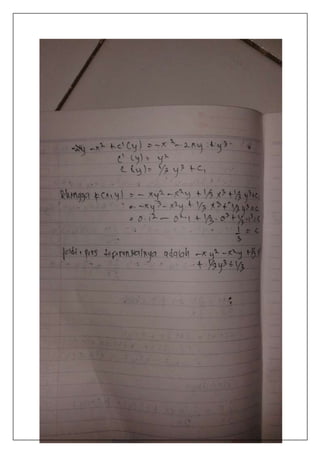 -2xy - x² + c'(y) = -x² - 2xy + y²
c'(y) = y²
c(y) = 1/3 y³ + C₁
Sehingga F(x,y) = - xy² - x²y + 1/3 x³ + 1/3 y³ = C
= - xy² - x²y + 1/3 x³ + 1/3 y³ = C
= 0.1² - 0².1 + 1/3. 0³ + 1/3 = C
1/3 = C
Jadi, pers adalah - xy² - x²y + 1/3 x³
+ 1/3 y³ = 1/3